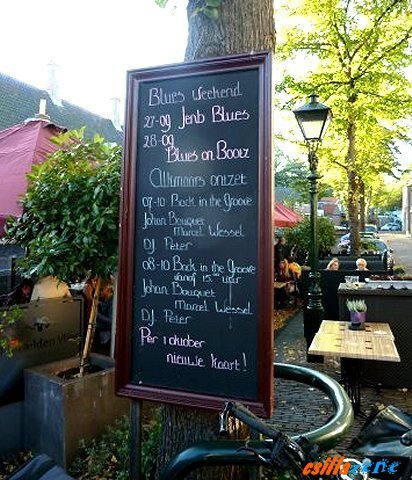 Blues Weekend
27-09 Jenb Blues
28-09
Blues on Booz
Alkmaars ontzet
07-10 Back in the Groove
Johan Bouquet
Marcel Wessel
DJ Peter
08-10 Back in the Groove
vanaf 15.00 uur
Johan Bouquet
Marcel Wessel
DJ Peter
Per 1 oktober
nieuwe kaart!